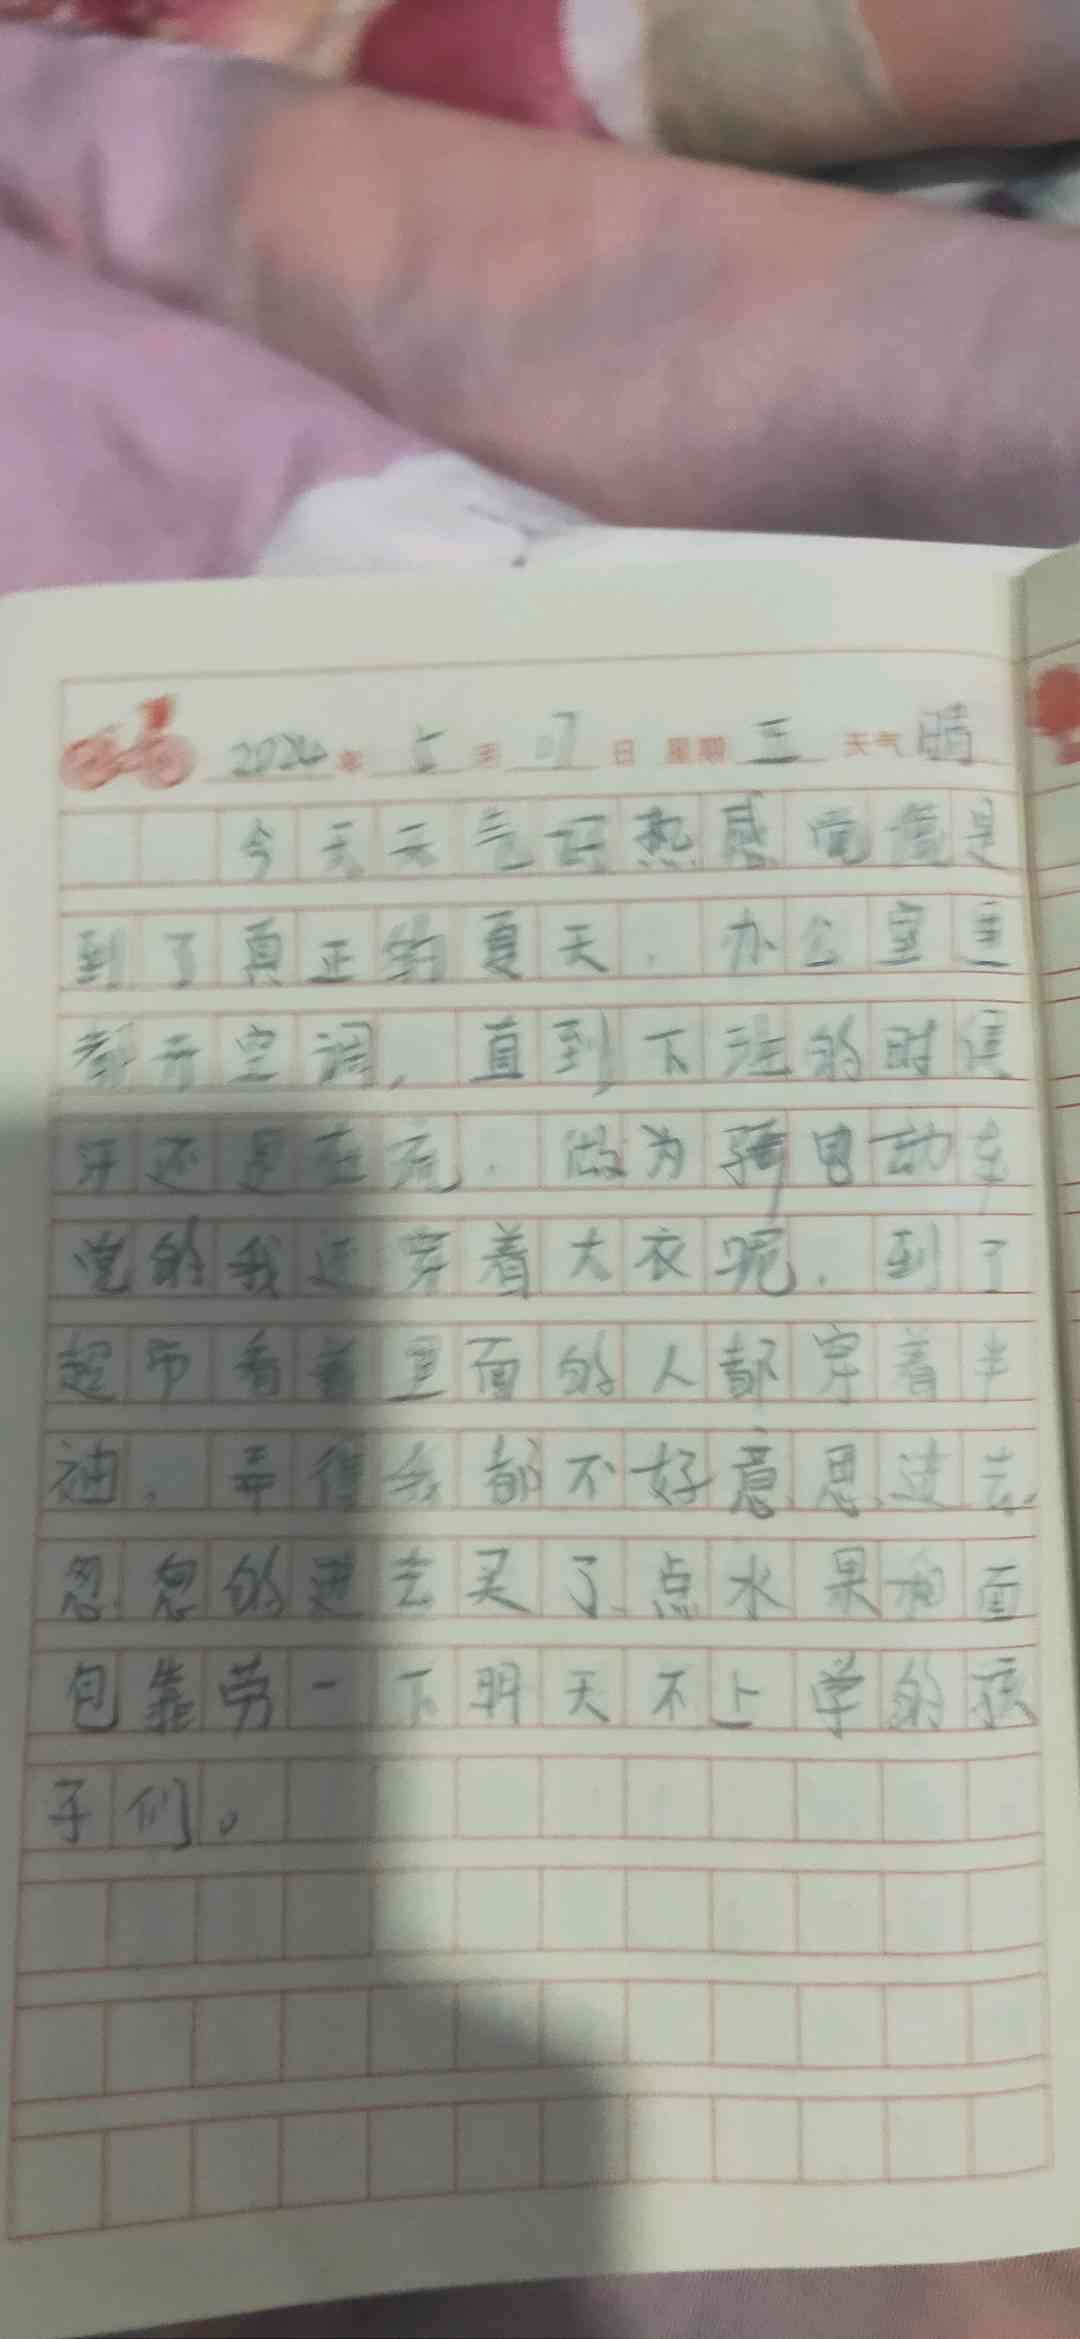 2024年 5月 17日 星期 五 天气 晴
今天天气好热感觉像是
到了真正的夏天．办公室里
都开空调，直到下班的时候
汗还是在流．做为骑电动车
党的我还穿着大衣呢．到了
超市看着里面的人都穿着半
袖．弄得我都不好意思过去
忽忽的进去买了点水果和面
包靠劳一下明天不上学的孩
子们。